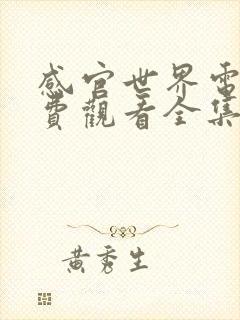 感官世界電
費觀看全集
黃秀生